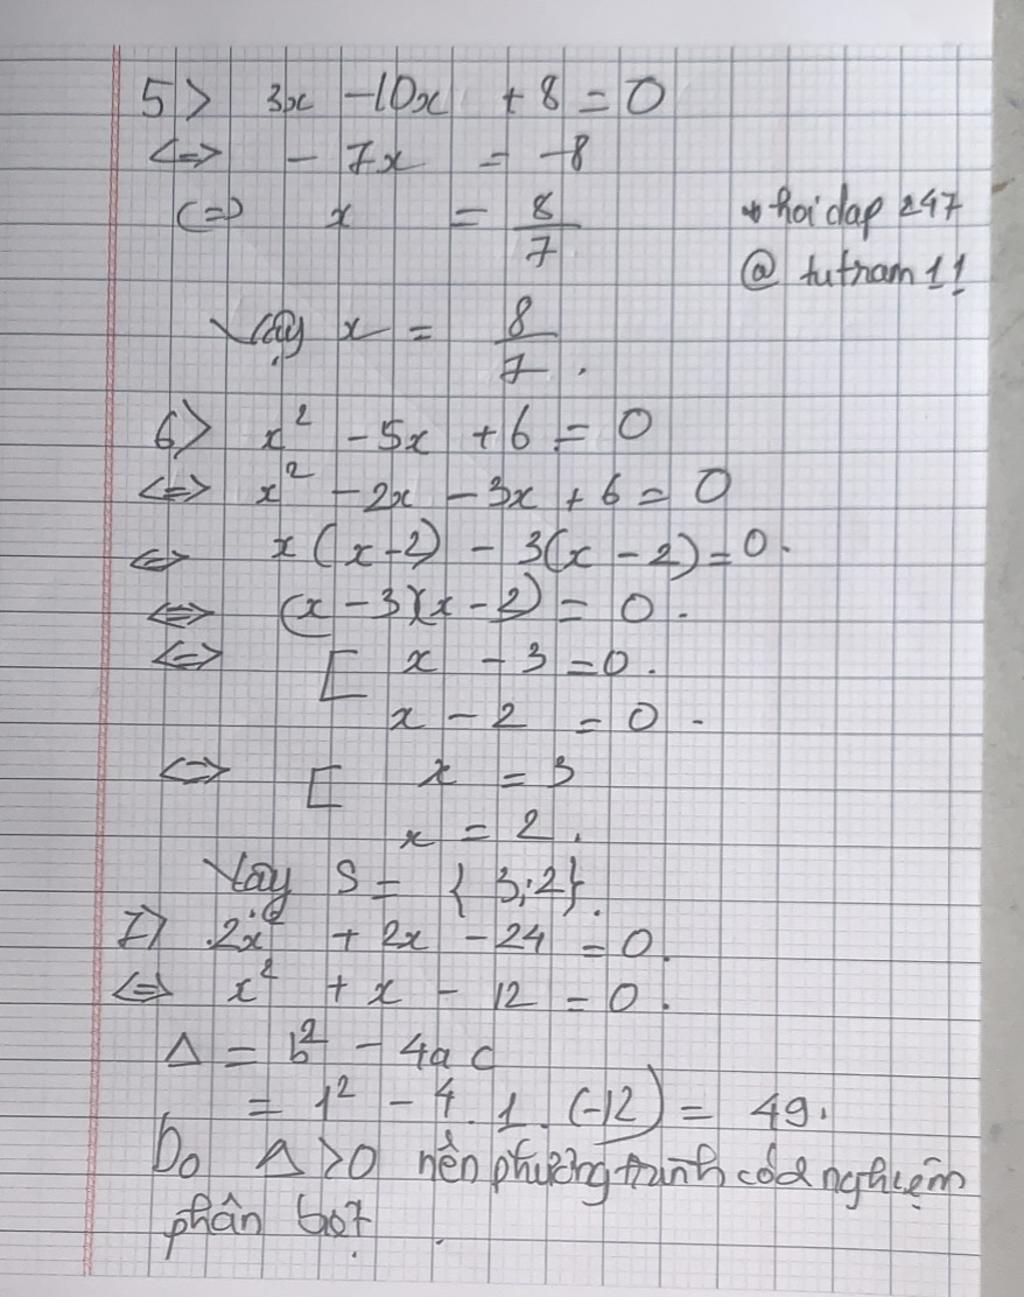 5> 3x -10x + 8 = 0
<=> - 7x = -8
(=) x = 8/7
* hoidap 247
@ tutram11
Vậy x = 8/7.
6> x² - 5x + 6 = 0
<=> x² - 2x - 3x + 6 = 0
<=> x(x-2) - 3(x - 2) = 0.
<=> (x - 3)(x - 2) = 0.
<=> [ x - 3 = 0.
x - 2 = 0.
<=> [ x = 3
x = 2.
Vậy S = { 3;2}.
7> 2x² + 2x - 24 = 0.
<=> x² + x - 12 = 0.
Δ = b² - 4ac
= 1² - 4.1.(-12) = 49.
Do Δ>0 nên phương trình có 2 nghiệm
phân biệt.